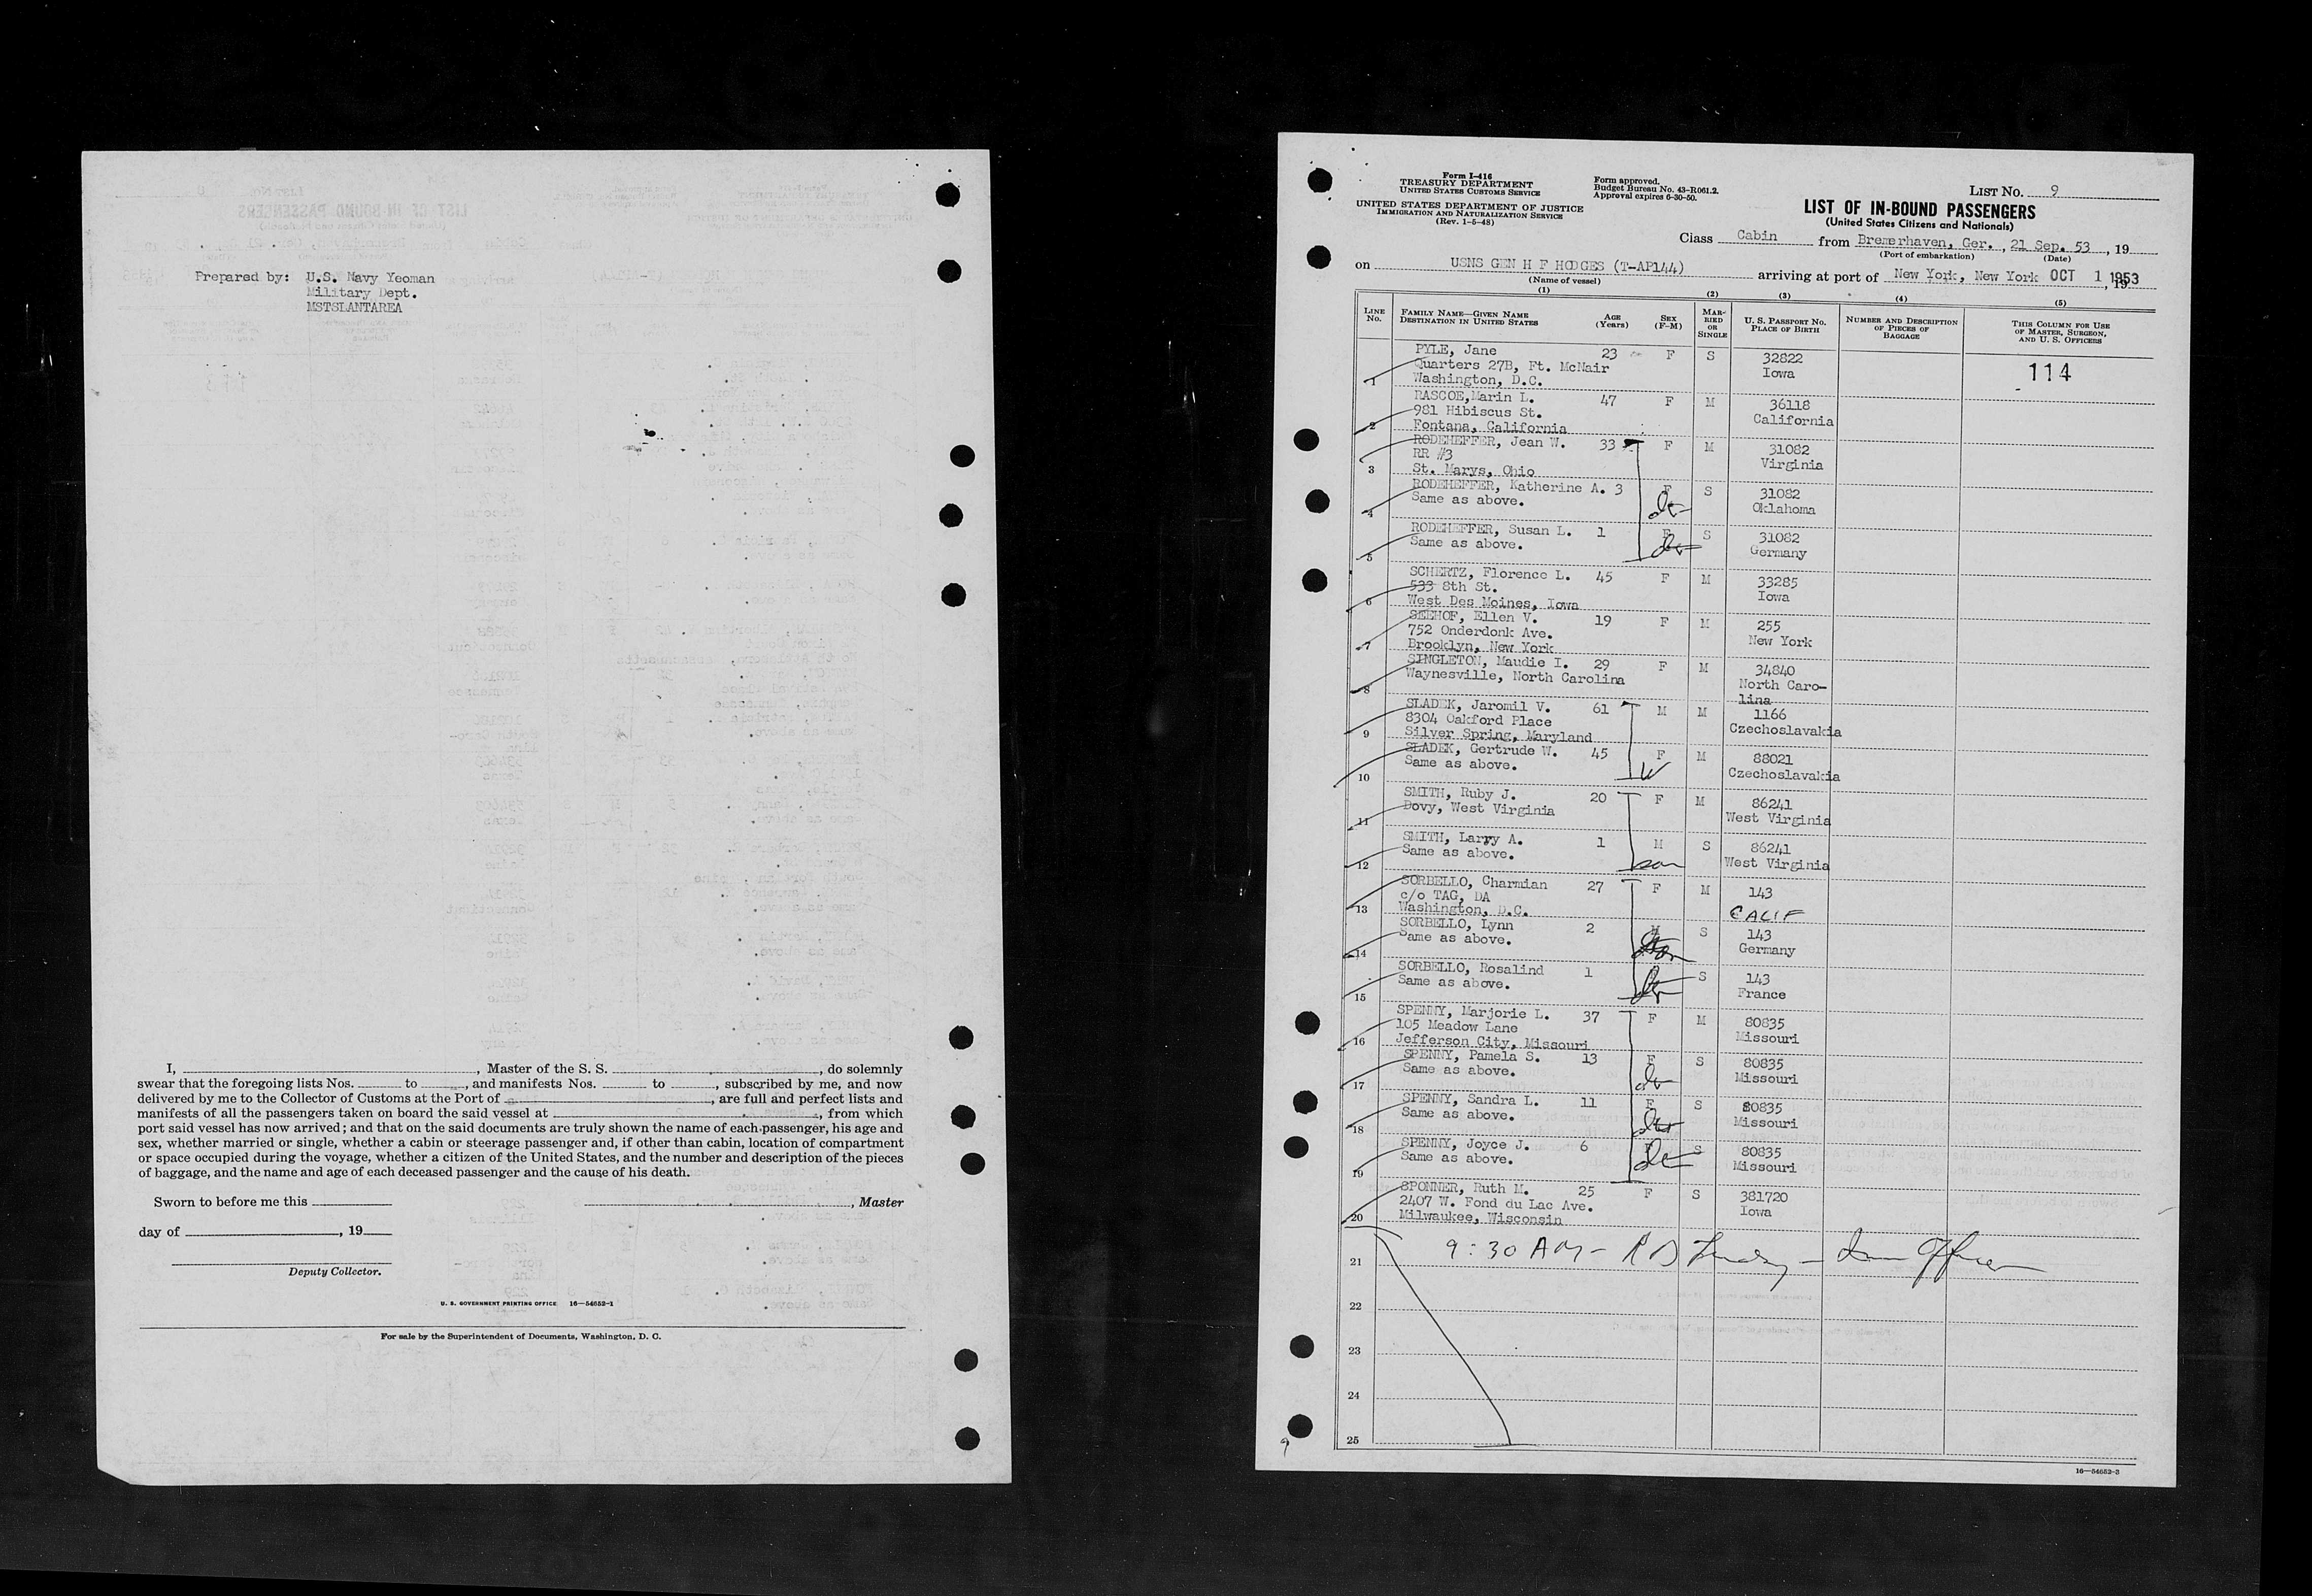 Prepared by: U.S. Navy Yeoman
Military Dept.
MSTSLANTAREA
I, , Master of the S. S. , do solemnly
swear that the foregoing lists Nos. to , and manifests Nos. to , subscribed by me, and now
delivered by me to the Collector of Customs at the Port of , are full and perfect lists and
manifests of all the passengers taken on board the said vessel at , from which
port said vessel has now arrived; and that on the said documents are truly shown the name of each passenger, his age and
sex, whether married or single, whether a cabin or steerage passenger and, if other than cabin, location of compartment
or space occupied during the voyage, whether a citizen of the United States, and the number and description of the pieces
of baggage, and the name and age of each deceased passenger and the cause of his death.
Sworn to before me this , Master
day of , 19
Deputy Collector.
U. S. GOVERNMENT PRINTING OFFICE 16—54652-1
For sale by the Superintendent of Documents, Washington, D. C.
Form I-416
TREASURY DEPARTMENT
UNITED STATES CUSTOMS SERVICE
UNITED STATES DEPARTMENT OF JUSTICE
IMMIGRATION AND NATURALIZATION SERVICE
(Rev. 1-5-48)
Form approved.
Budget Bureau No. 43-R061.2.
Approval expires 6-30-50.
LIST NO. 9
LIST OF IN-BOUND PASSENGERS
(United States Citizens and Nationals)
Class Cabin from Bremerhaven, Ger. , 21 Sep. 53 , 19
(Port of embarkation) (Date)
on USNS GEN H F HODGES (T-AP144) arriving at port of New York, New York OCT 1 1953 , 19
(Name of vessel)
(1) (2) (3) (4) (5)
LINE No. FAMILY NAME—GIVEN NAME DESTINATION IN UNITED STATES AGE (Years) SEX (F-M) MARRIED OR SINGLE U. S. PASSPORT NO. PLACE OF BIRTH NUMBER AND DESCRIPTION OF PIECES OF BAGGAGE THIS COLUMN FOR USE OF MASTER, SURGEON, AND U. S. OFFICERS
PYLE, Jane 23 F S 32822
Quarters 27B, Ft. McNair Iowa 114
1 Washington, D.C.
RASCOE,Marin L. 47 F M 36118
981 Hibiscus St. California
2 Fontana, California
RODEHEFFER, Jean W. 33 F M 31082
RR #3 Virginia
3 St. Marys, Ohio
RODEHEFFER, Katherine A. 3 F S 31082
Same as above. Oklahoma
4
RODEHEFFER, Susan L. 1 F S 31082
Same as above. Germany
5
SCHERTZ, Florence L. 45 F M 33285
533 8th St. Iowa
6 West Des Moines, Iowa
SEEHOF, Ellen V. 19 F M 255
752 Onderdonk Ave. New York
7 Brooklyn, New York
SINGLETON, Maudie I. 29 F M 34840
Waynesville, North Carolina North Caro-
8 lina
SLADEK, Jaromil V. 61 M M 1166
8304 Oakford Place Czechoslavakia
9 Silver Spring, Maryland
SLADEK, Gertrude W. 45 F M 88021
Same as above. W Czechoslavakia
10
SMITH, Ruby J. 20 F M 86241
Dovy, West Virginia West Virginia
11
SMITH, Larry A. 1 M S 86241
Same as above. son West Virginia
12
SORBELLO, Charmian 27 F M 143
c/o TAG, DA CALIF
13 Washington, D.C.
SORBELLO, Lynn 2 S 143
Same as above. Germany
14
SORBELLO, Rosalind 1 S 143
Same as above. France
15
SPENNY, Marjorie L. 37 F M 80835
105 Meadow Lane Missouri
16 Jefferson City, Missouri
SPENNY, Pamela S. 13 F S 80835
Same as above. Missouri
17
SPENNY, Sandra L. 11 F S 80835
Same as above. Missouri
18
SPENNY, Joyce J. 6 S 80835
Same as above. Missouri
19
SPONNER, Ruth M. 25 F S 381720
2407 W. Fond du Lac Ave. Iowa
20 Milwaukee, Wisconsin
21 9:30 AM -
22
23
24
25
9
16—54652-3